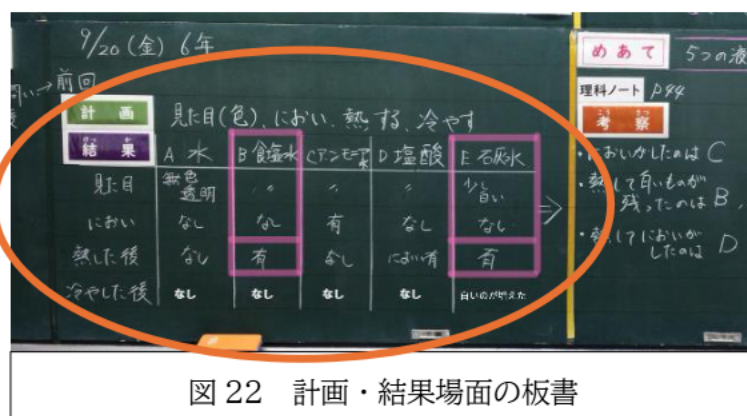 9/20(金) 6年
→前回
計画 見た目(色)、におい、熱する、冷やす
結果 A 水 B 食塩水 Cアンモニア水 D 塩酸 E 石灰水
見た目 無色透明 〃 〃 〃 少し白い
におい なし なし 有 なし なし
熱した後 なし 有 なし におい有 有
冷やした後 なし なし なし なし 白いのが増えた
めあて 5つの液
理科ノート P44
考察
・においがしたのは C
・熱して白いものが
残ったのは B、
・熱してにおいが
したのは D
図 22 計画・結果場面の板書